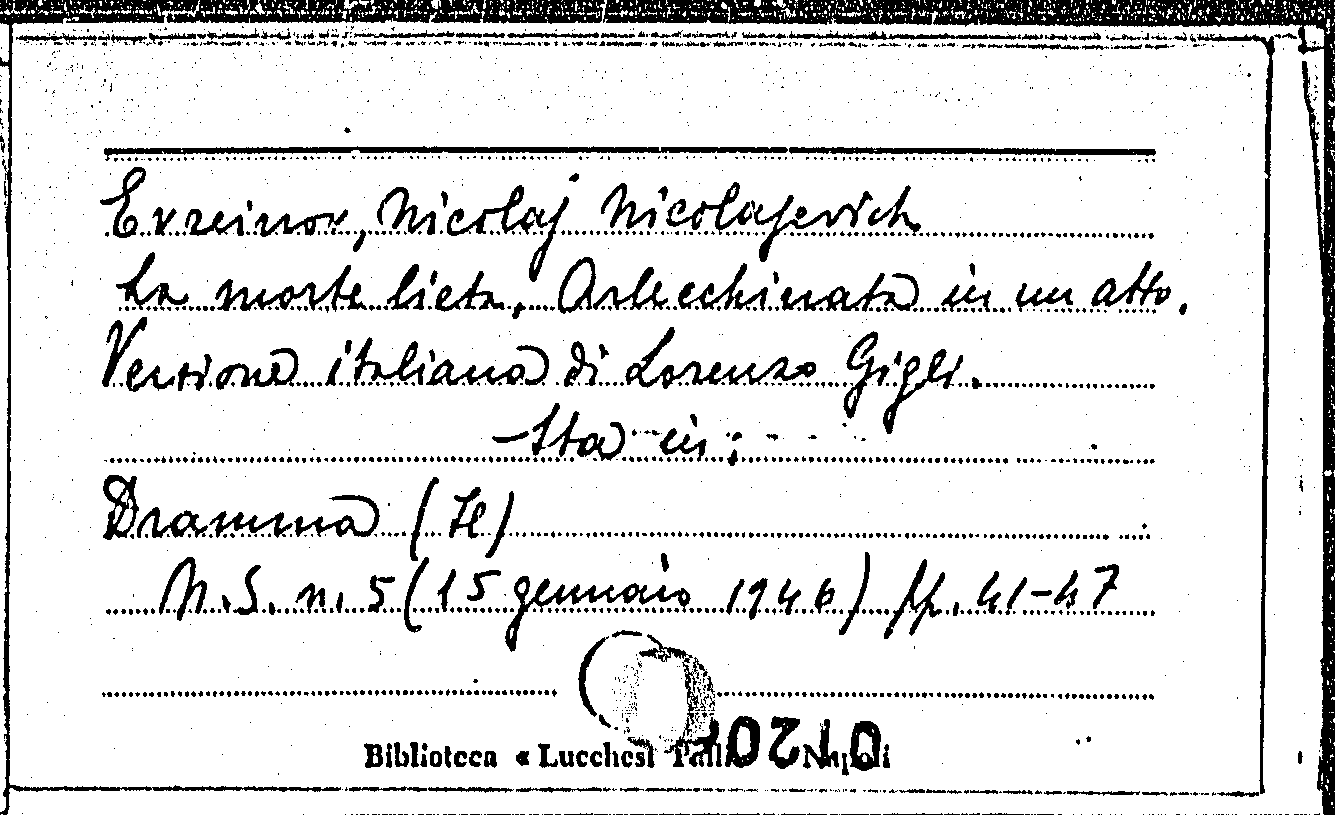 Evreinov, Nicolaj Nicolajevich
La morte lieta, Arlecchinata in un atto.
Versione italiana di Lorenzo Gigli.
Sta in:
Dramma (Il)
N.S. n. 5 (15 gennaio 1946) pp. 41-47
Biblioteca « Lucchesi Napoli